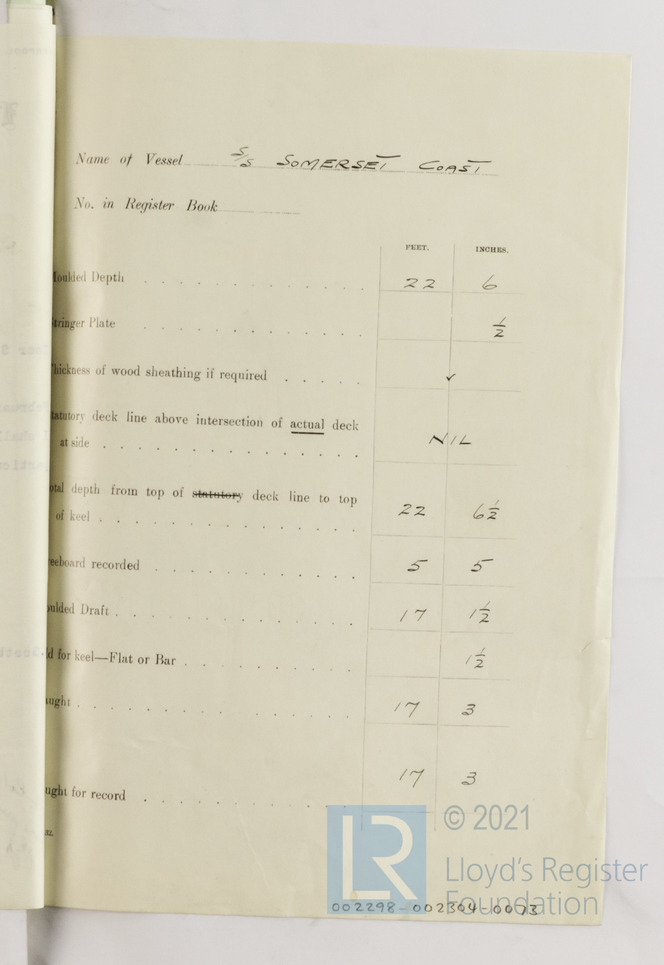 Name of Vessel S/S SOMERSET COAST
No. in Register Book
FEET. INCHES.
oulded Depth 22 6
tringer Plate ½
hickness of wood sheathing if required ✓
tatutory deck line above intersection of actual deck
at side NIL
otal depth from top of statutory deck line to top
of keel 22 6½
eeboard recorded 5 5
oulded Draft 17 1½
ld for keel—Flat or Bar 1½
aught 17 3
ught for record 17 3
32.
LR
© 2021
Lloyd's Register
Foundation
002298-002304-0073